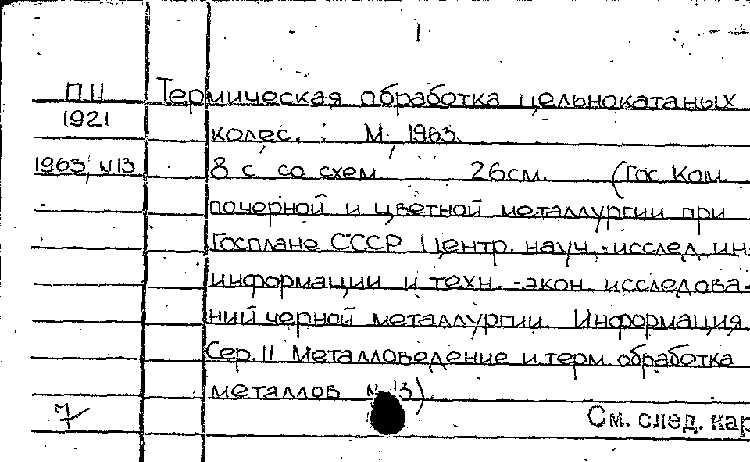 П11 Термическая обработка цельнокатаных
1921 колес. М. 1963.
1963, N13 8 с со схем 26см. (Гос. Ком.
по черной и цветной металлургии при
Госплане СССР Центр. науч.-исслед. ин-
информации и техн.-экон. исследова-
ний черной металлургии Информация
Сер. 11 Металловедение и терм. обработка
металлов N 13)
См. след. кар